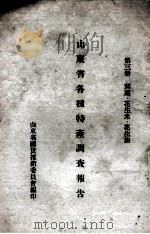 第三册 黄烟 花生米 花生油
山東省各種特產調查報告
山東省國貨推銷委員會編印